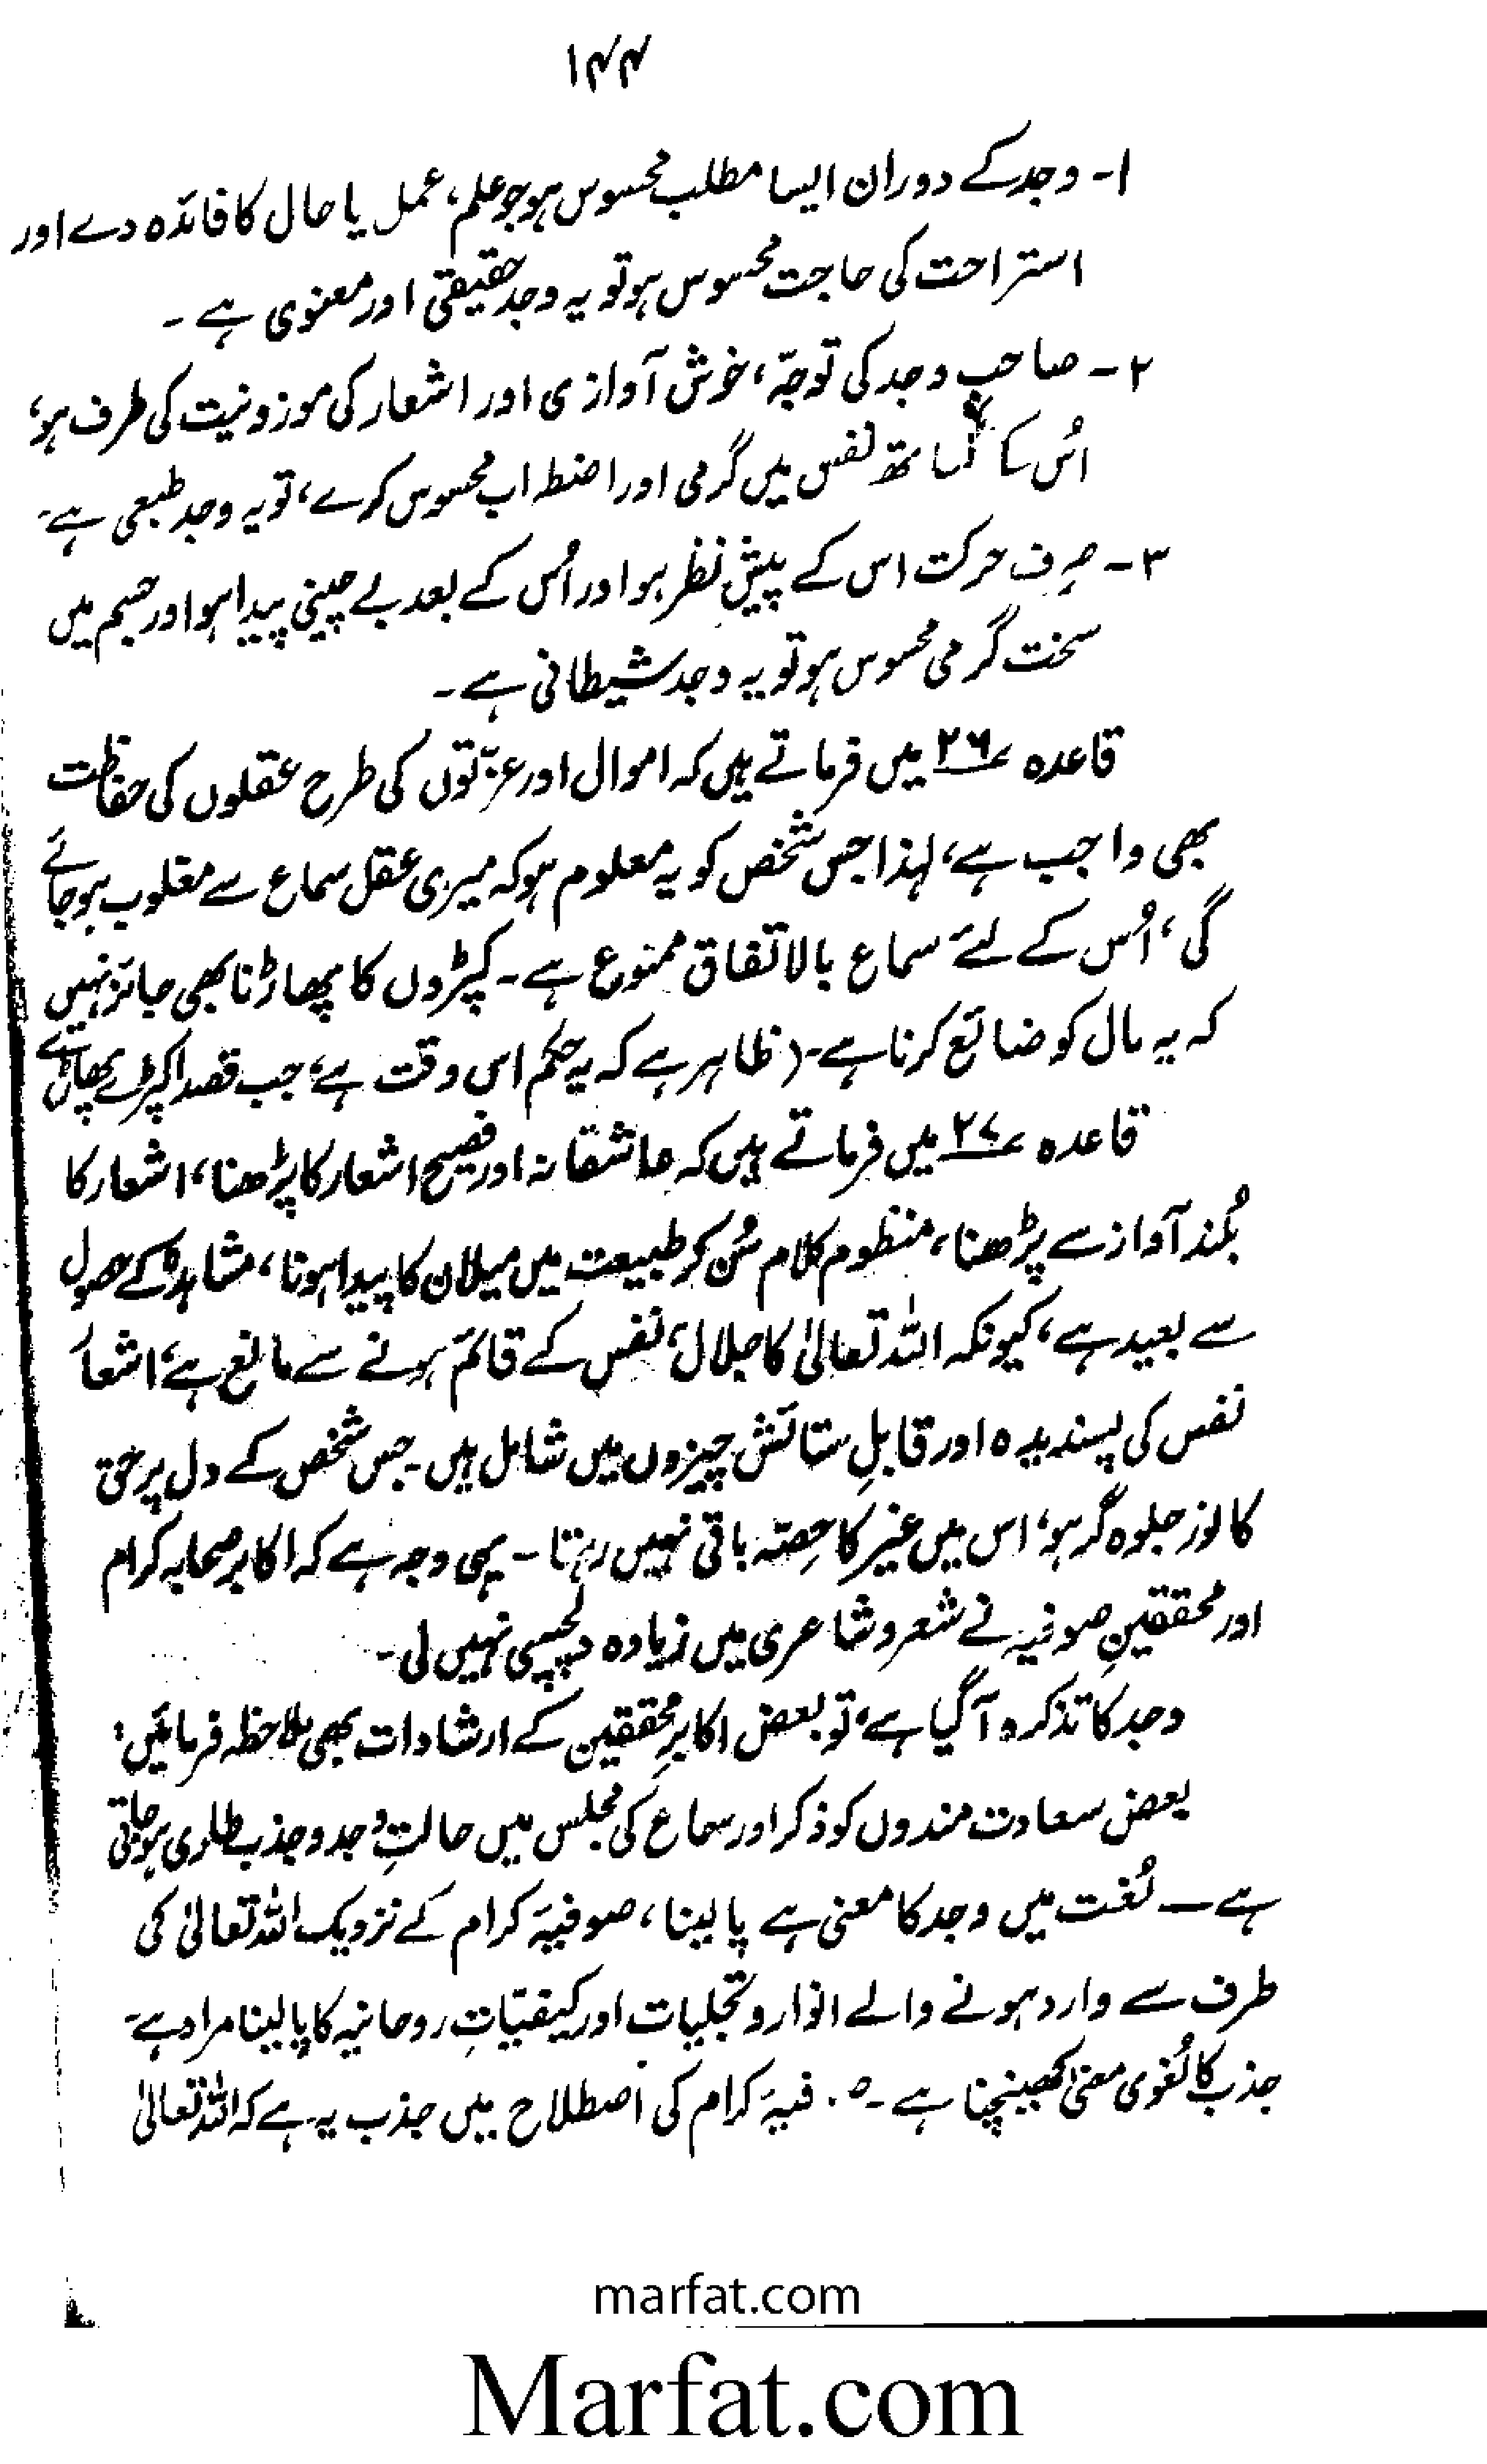 ۱۴۴
۱۔ وجد کے دوران ایسا مطلب محسوس ہو جو علم، عمل یا حال کا فائدہ دے اور
استراحت کی حاجت محسوس ہو تو یہ وجد حقیقی اور معنوی ہے ۔
۲۔ صاحبِ وجد کی توجّہ، خوش آوازی اور اشعار کی موزونیت کی طرف ہو،
اُس کے ساتھ نفس میں گرمی اور اضطراب محسوس کرے، تو یہ وجد طبعی ہے۔
۳۔ صِرف حرکت اس کے پیشِ نظر ہو اور اُس کے بعد بے چینی پیدا ہو اور جسم میں
سخت گرمی محسوس ہو تو یہ وجد شیطانی ہے۔
قاعدہ ۲۶ میں فرماتے ہیں کہ اموال اور عزتوں کی طرح عقلوں کی حفاظت
بھی واجب ہے، لہذا جس شخص کو یہ معلوم ہو کہ میری عقل سماع سے مغلوب ہو جائے
گی، اُس کے لئے سماع بالاتفاق ممنوع ہے۔ کپڑوں کا پھاڑنا بھی جائز نہیں
کہ یہ مال کو ضائع کرنا ہے۔ (ظاہر ہے کہ یہ حکم اس وقت ہے، جب قصداً کپڑے پھاڑے
قاعدہ ۲۷ میں فرماتے ہیں کہ عاشقانہ اور فصیح اشعار کا پڑھنا، اشعار کا
بُلند آواز سے پڑھنا، منظوم کلام سُن کر طبیعت میں میلان کا پیدا ہونا، مشاہدہ کے حصول
سے بعید ہے، کیونکہ اللہ تعالیٰ کا جلال، نفس کے قائم ہونے سے مانع ہے، اشعار
نفس کی پسندیدہ اور قابلِ ستائش چیزوں میں شامل ہیں۔ جس شخص کے دل پر حق
کا نور جلوہ گر ہو، اس میں غیر کا حِصّہ باقی نہیں رہتا ۔ یہی وجہ ہے کہ اکابر صحابہ کرام
اور محققینِ صوفیہ نے شعر و شاعری میں زیادہ دلچسپی نہیں لی۔
وجد کا تذکرہ آ گیا ہے، تو بعض اکابرِ محققین کے ارشادات بھی ملاحظہ فرمائیں:
بعض سعادت مندوں کو ذکر اور سماع کی مجلس میں حالتِ وجد و جذب طاری ہو جاتی
ہے ــ لُغت میں وجد کا معنی ہے پا لینا، صوفیۂ کرام کے نزدیک اللہ تعالیٰ کی
طرف سے وارد ہونے والے انوار و تجلیات اور کیفیّاتِ روحانیہ کا پا لینا مراد ہے۔
جذب کا لُغوی معنی کھینچنا ہے ۔ فیۂ کرام کی اصطلاح میں جذب یہ ہے کہ اللہ تعالیٰ
marfat.com
Marfat.com